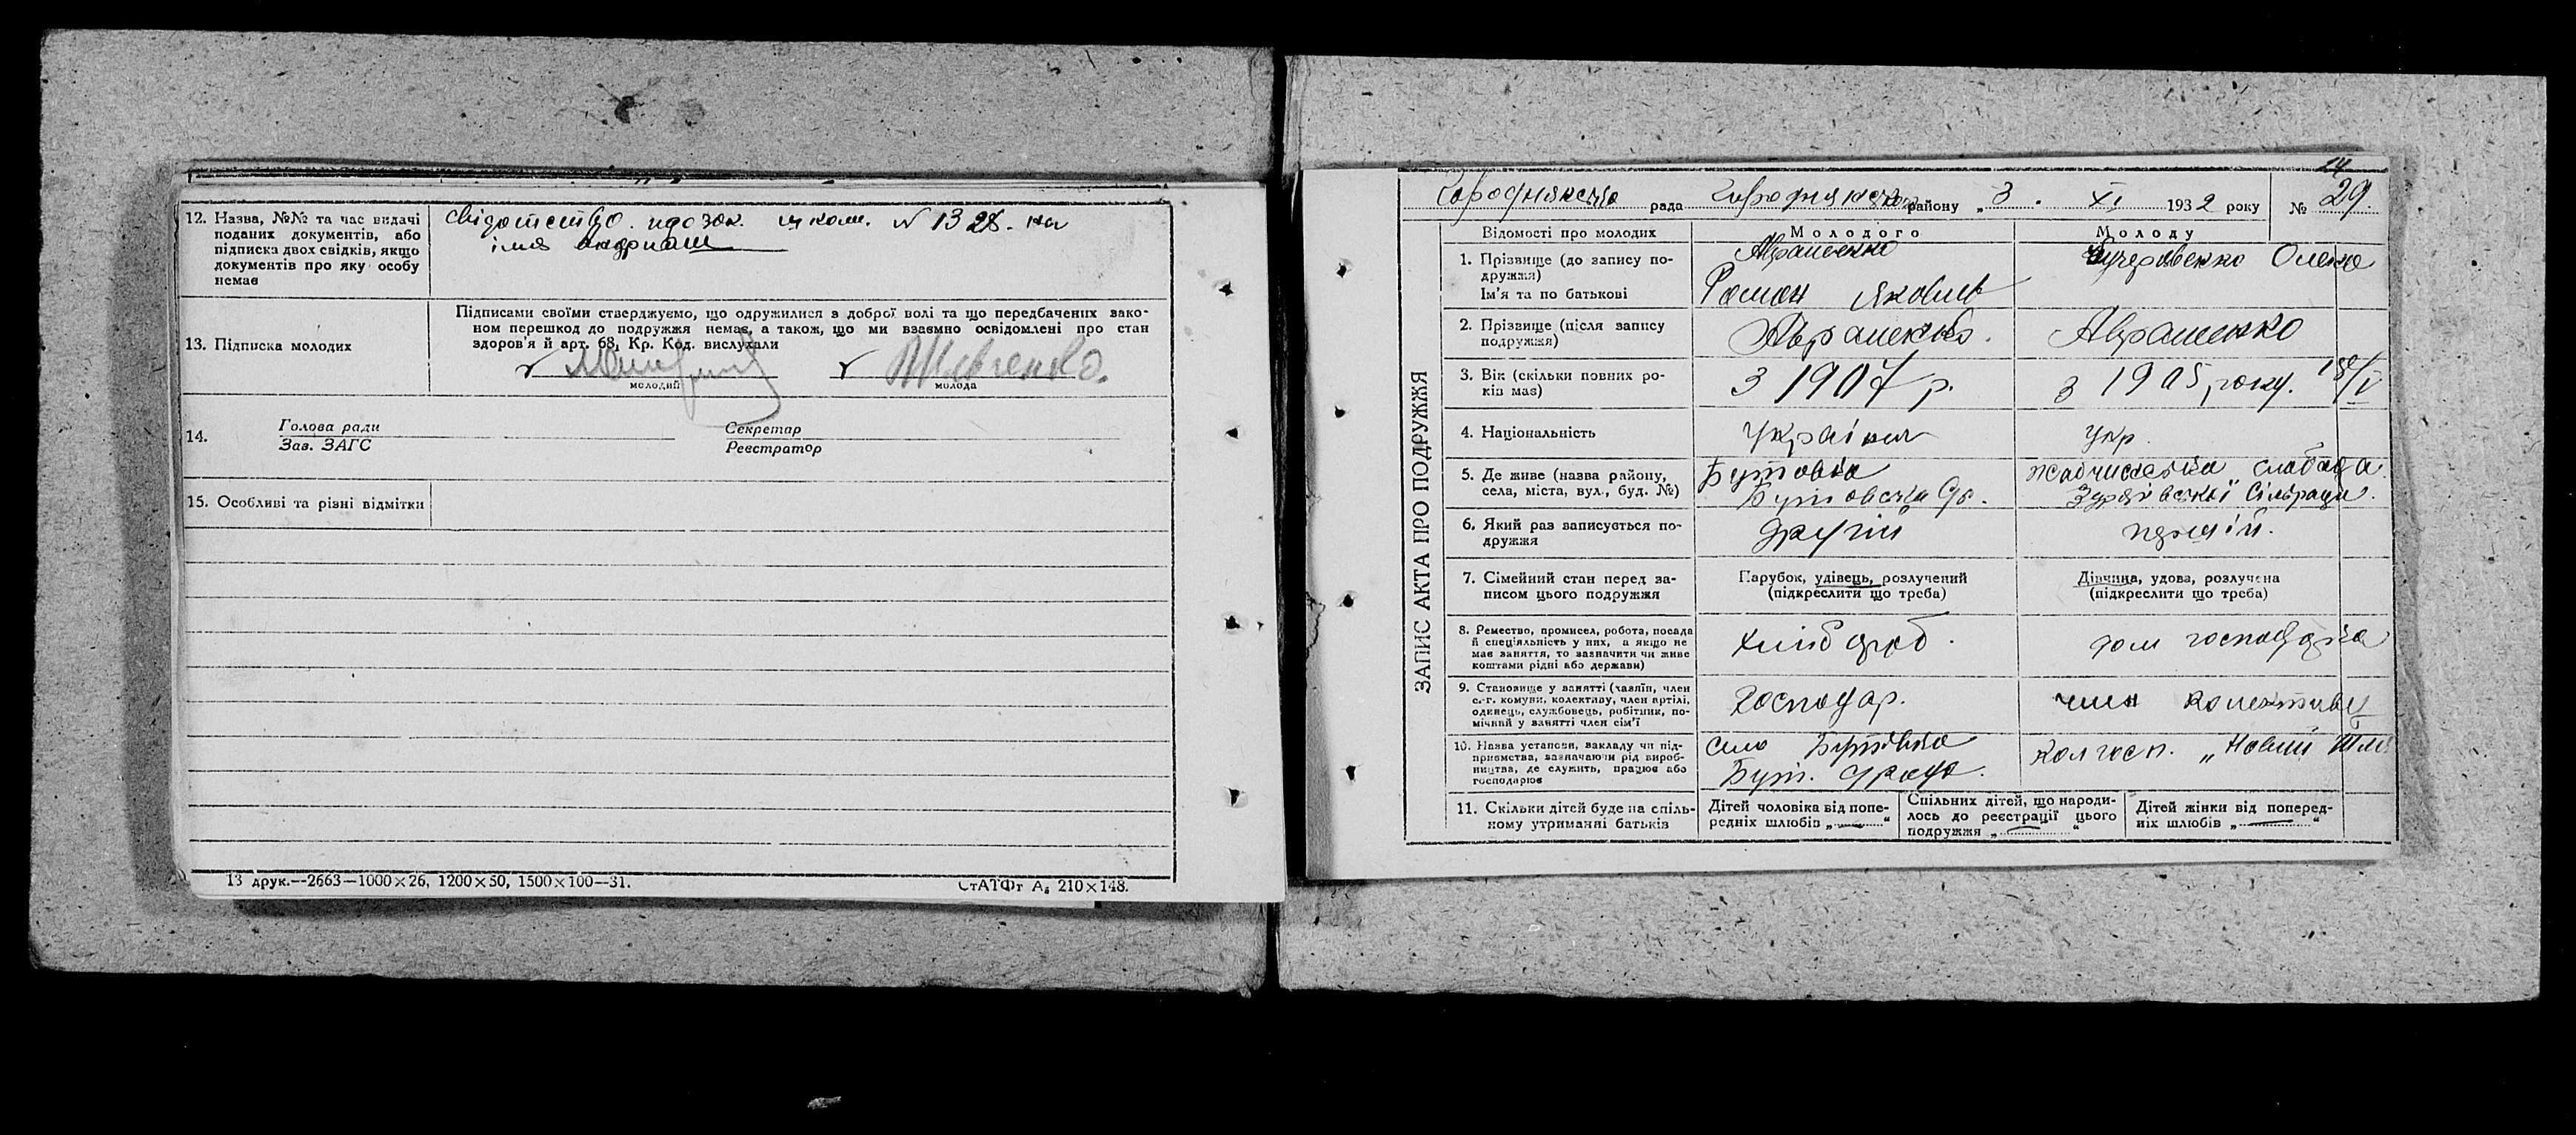 12. Назва, №№ та час видачі поданих документів, або підписка двох свідків, якщо документів про яку особу немає
свідотство. шком. № 1328. на
імя
13. Підписка молодих
Підписами своїми стверджуємо, що одружилися з доброї волі та що передбачених зако-
ном перешкод до подружжя немає, а також, що ми взаємно освідомлені про стан
здоров'я й арт. 68, Кр. Код. вислухали
молодий
Шевченко.
молода
14. Голова ради
Зав. ЗАГС
Секретар
Реєстратор
15. Особливі та різні відмітки
13 друк.—2663—1000×26, 1200×50, 1500×100—31.
СтАТФт А₅ 210×148.
14
Городнянська рада Городнянськ району „3. XI 1932 року № 29.
ЗАПИС АКТА ПРО ПОДРУЖЖЯ
Відомості про молодих
Молодого
Молоду
1. Прізвище (до запису по-
дружжя)
Ім'я та по батькові
Авраменко
Роман Яковлев
Кучеровенко Олена
2. Прізвище (після запису
подружжя)
Авраменко.
Авраменко
3. Вік (скільки повних ро-
ків має)
З 1907 р.
з 1905 року. 18/V
4. Національність
Українец
Укр.
5. Де живе (назва району,
села, міста, вул., буд. №)
Бутовка
Бутовська
слобода
Сільради.
6. Який раз записується по-
дружжя
другий
першій.
7. Сімейний стан перед за-
писом цього подружжя
Парубок, удівець, розлучений
(підкреслити що треба)
Дівчина, удова, розлучена
(підкреслити що треба)
8. Ремество, промисел, робота, посада
й спеціяльність у них, а якщо не
має заняття, то зазначити чи живе
коштами рідні або держави)
Хлібороб.
дом господарка
9. Становище у занятті (хазяїн, член
с.-г. комуни, колективу, член артілі,
одинець, службовець, робітник, по-
мічний у занятті член сім'ї
господар.
член колективу
10. Назва установи, закладу чи під-
приємства, зазначаючи рід вироб-
ництва, де служить, працює або
господарює
село Бутівка
Бут. с/рада.
колгосп. „Новий Шлях
11. Скільки дітей буде на спіль-
ному утриманні батьків
Дітей чоловіка від попе-
редніх шлюбів „—“
Спільних дітей, що народи-
лось до реєстрації цього
подружжя „—“
Дітей жінки від поперед-
ніх шлюбів „—“